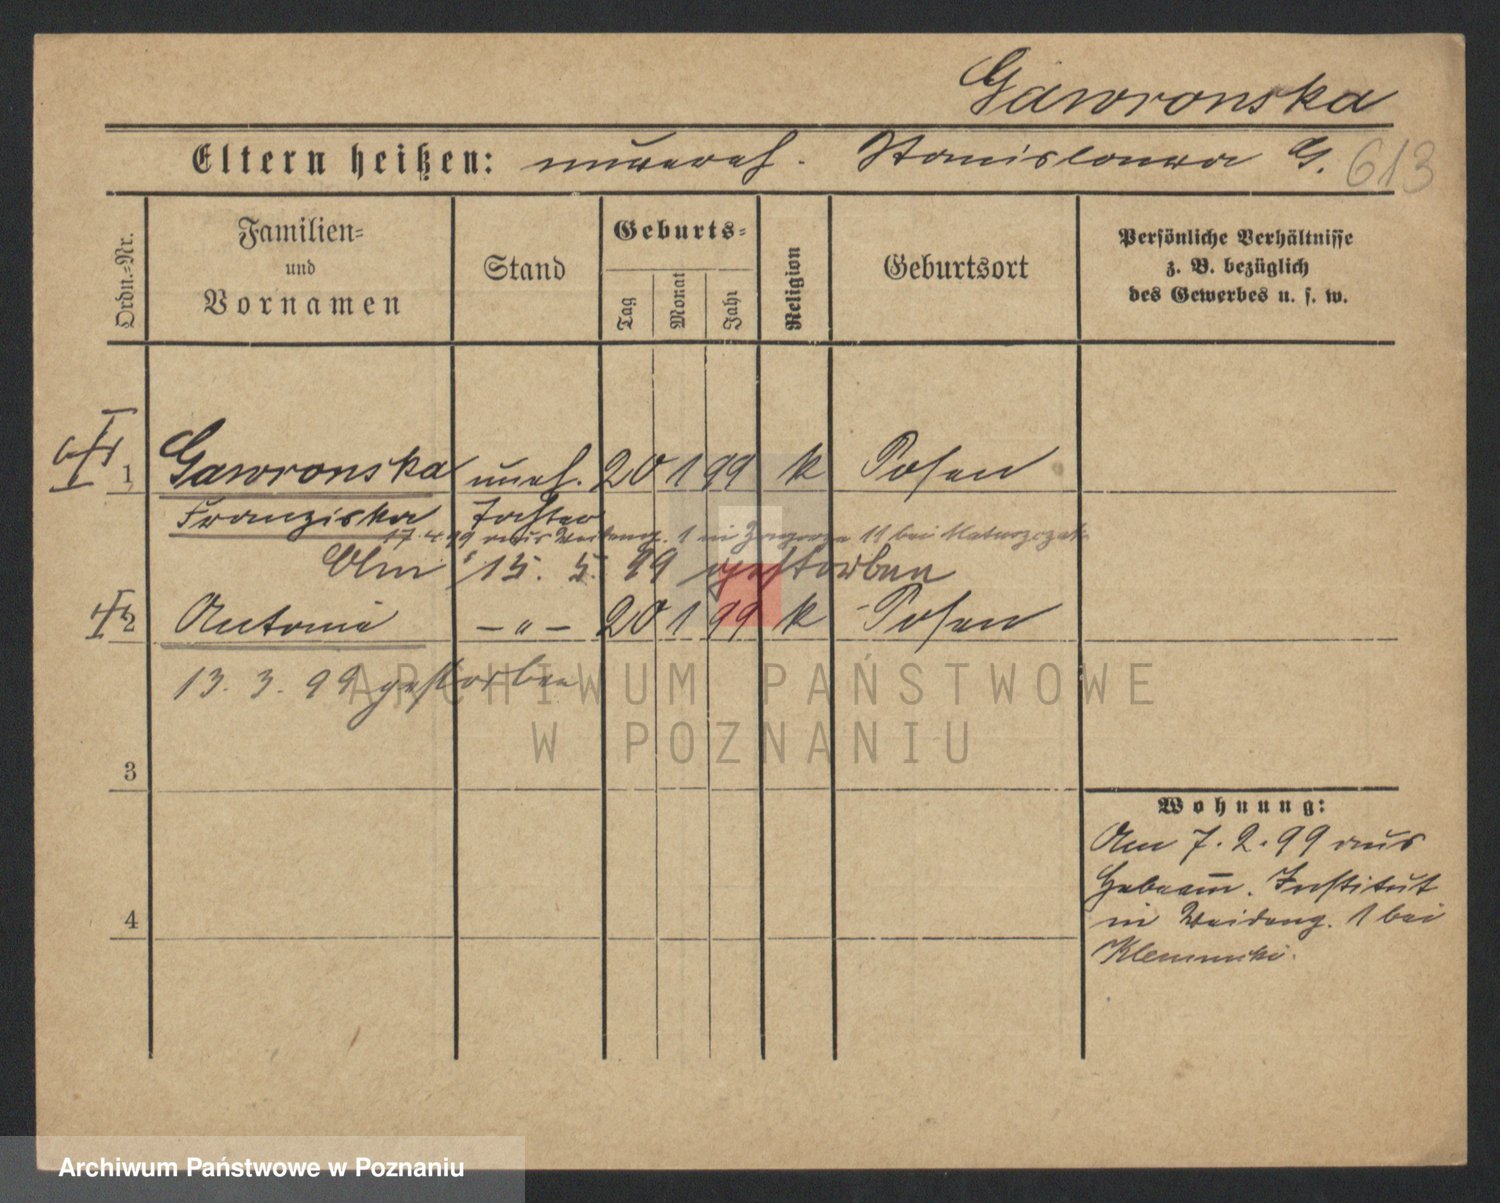 Gawronska
Eltern heißen: unvereh. Stanislawa G. 613
Ordn.-Nr.
Familien-
und
Vornamen
Stand
Geburts-
Tag
Monat
Jahr
Religion
Geburtsort
Persönliche Verhältnisse
z. B. bezüglich
des Gewerbes u. s. w.
1 Gawronska uneh. 20 1 99 k Posen
Franziska Tochter
17.4.99 aus Weideng. 1 in 11 bei
Am 15. 5. 99 gestorben
2 Antonie – " – 20 1 99 k Posen
13. 3. 99 gestorben
ARCHIWUM PAŃSTWOWE
W POZNANIU
3
Wohnung:
Am 7. 2. 99 aus
Hebeam. Institut
in Weideng. 1 bei
4
Archiwum Państwowe w Poznaniu